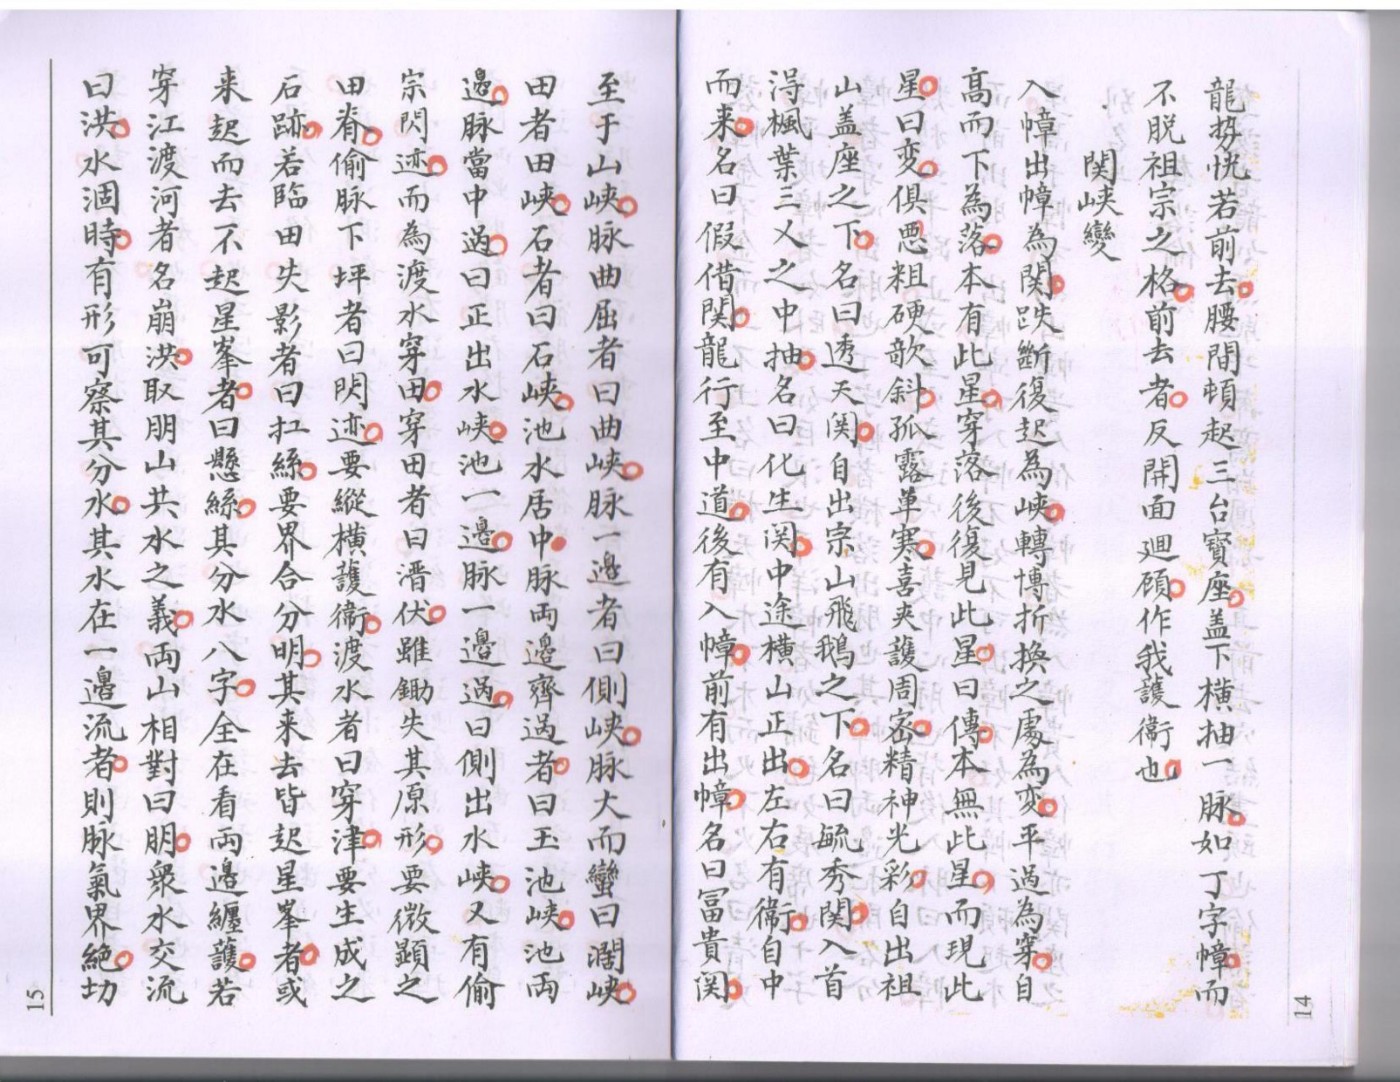 龍势恍若前去腰間頓起三台寳座盖下横抽一脉如丁字幛而
不脱祖宗之格前去者反開面廻顾作我護衛也
関峡變
入幛出幛為関跌斷復起為峡轉慱折換之處為变平過為穿自
髙而下為落本有此星穿落後復見此星曰傳本無此星而現此
星曰变俱思粗硬歌斜孤露单寒喜夾護周密精神光彩自出祖
山盖座之下名曰透天関自出宗山飛鵝之下名曰毓秀関入首
淂楓葉三乂之中抽名曰化生関中途横山正出左右有衛自中
而来名曰假借関龍行至中道後有入幛前有出幛名曰冨貴関
14
至于山峡脉曲屈者曰曲峡脉一邉者曰側峡脉大而蠻曰濶峡
田者田峡石者曰石峡池水居中脉両邉齊過者曰玉池峡池両
邉脉當中過曰正出水峡池一邉脉一邉過曰側出水峡又有偷
宗閃迹而為渡水穿田穿田者曰潛伏雖鋤失其原形要微顕之
田脊偷脉下坪者曰閃迹要縱横護衛渡水者曰穿津要生成之
石跡若臨田失影者曰扛絲要界合分明其来去皆起星峯者或
来起而去不起星峯者曰懸絲其分水八字全在看両邉纏護若
穿江渡河者名崩洪取朋山共水之義両山相對曰朋衆水交流
曰洪水涸時有形可察其分水其水在一邉流者則脉氣界絶切
15